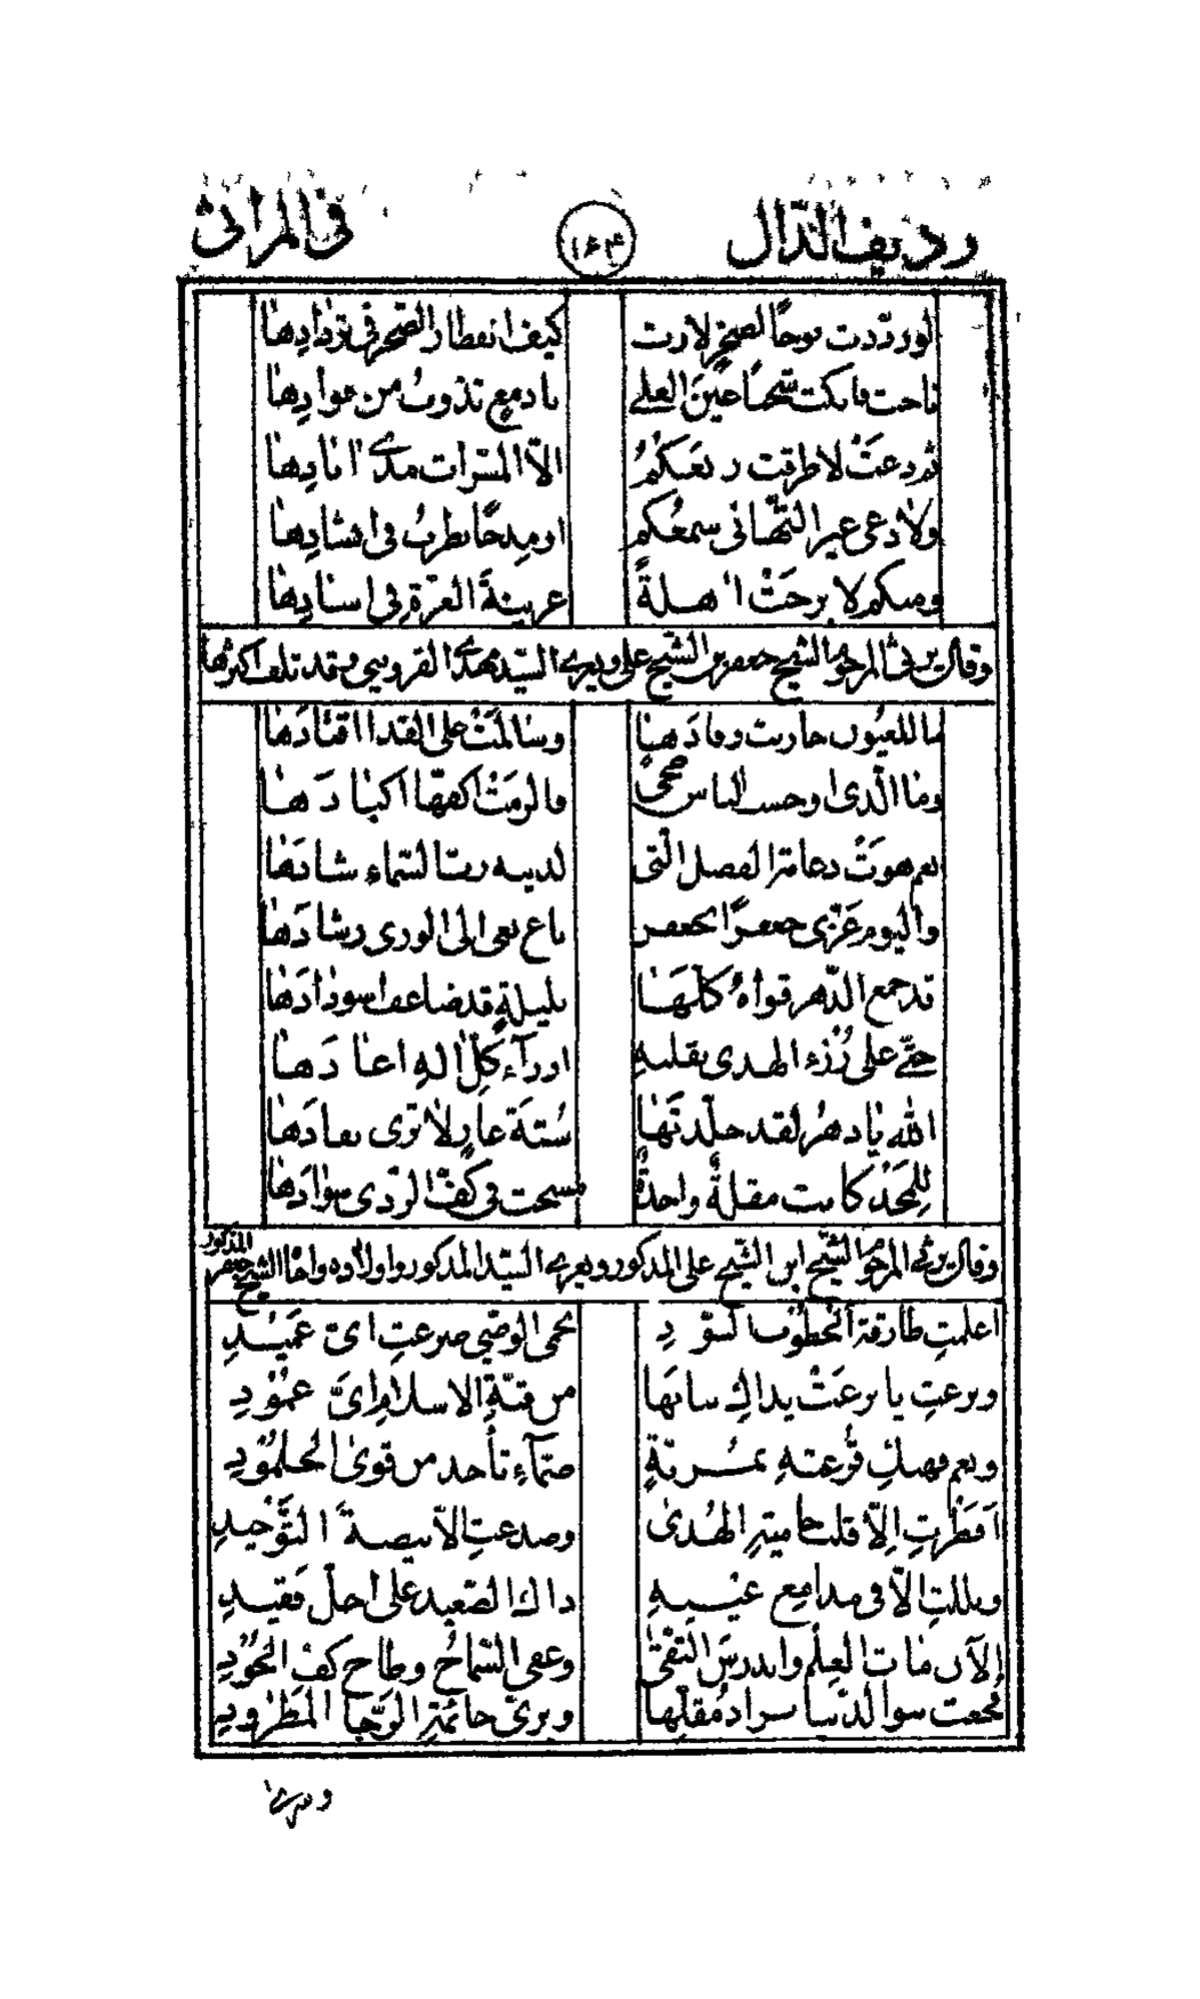 رديف الدّال ١٦٤ في المراثى
لو ردّدت نوحًا لصخرٍ لارت كيف انفطار الصّخر في تردادها
ناحت فابكت شجًا عين العلى بادمعٍ تذوبُ من فوادها
ثم دعَتْ لا طرقت ربعكمُ الّا المسرات مدى آبادها
ولا دعى غير التّهاني سمعكم او مدحًا يطربُ في انشادها
ومنكم لا برحَتْ آهلةً عرينةُ العزّة في اسادها
وقال يرثي المرحوم الشيخ جعفر بن الشيخ علي ويعزي السيّد مهدي القزويني وقد تلف اكثرها
ما للعيون حاربت رقادَها وسالمَتْ على القذا اقتادَها
وما الّذى اوحس الناس ضحىً فالزمَتْ اكفّها اكبادَها
نعم هوَتْ دعامة الفضل الّتى لديه ربّ السّماء شادَها
واليوم عَزّى جعفرًا بجعفر ناعٍ نعى الى الورى رشادَها
قد جمع الدّهر قواهُ كلّها بليلةٍ قد ضاعف اسودادَها
حتّى على رُزء الهدى بقلبهِ ارزآء كلّ آلهِ اعادَها
الله يا دهرُ لقد خلّدتَها سُبّةَ عارٍ لا ترى نفادَها
للمجد كانت مقلةٌ واحدةٌ مسحت في كفّ الردى سوادَها
وقال يرثي المرحوم الشّيخ ابن الشّيخ علي المذكور ويعزي السيّد المذكور واولاده واخا الشيخ جعفر المذكور
اعلمتِ طارقة الخطوب السّودِ بحمى الوصّي صرعتِ اىّ عَميدِ
ونزعتِ يا نزعَتْ يداكِ بنانَها من قبّةِ الاسلام اىَّ عمُوْدِ
ونعم فهبكِ قرعتهِ بمُسريّةٍ صمّآءِ تأخذ من قوى الجلمُوْدِ
افَطَرْتِ الّا قلب حامية الهُدىٰ وصدعتِ الّا بيضةَ التَّوْحيدِ
وبللتِ الّا في مدامع عَيْنيهِ ذاك الصّعيد على اجلّ فقيدِ
الآن مات العلم واندرسَ التّقىٰ وعفى السّماحُ وطاح كفّ الجُوْدِ
فجعت بنو الدّنيا سراد مُقلّها وبرىّ حائمة الرّجا المَطْرُودِ